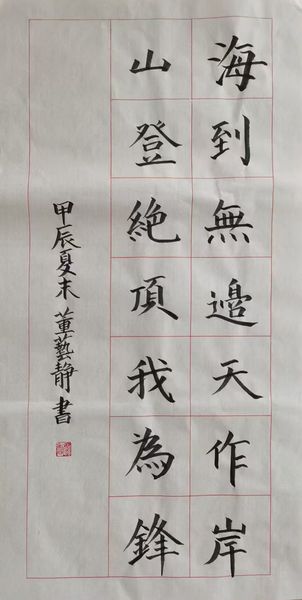 海到無邊天作岸
山登絶頂我為鋒
甲辰夏末董藝静書